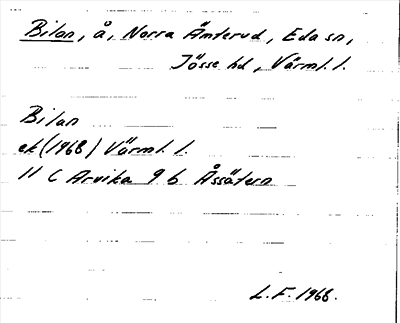 Bilan, å, Norra Änterud, Eda sn,
Jösse hd, Värml. l.
Bilan
ek (1968) Värml. l.
11 C Arvika 9 b Åssätern
L. F. 1968.